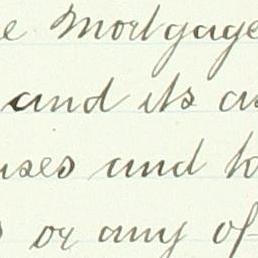 e Mortgage
and its as
uses and h
s or any of